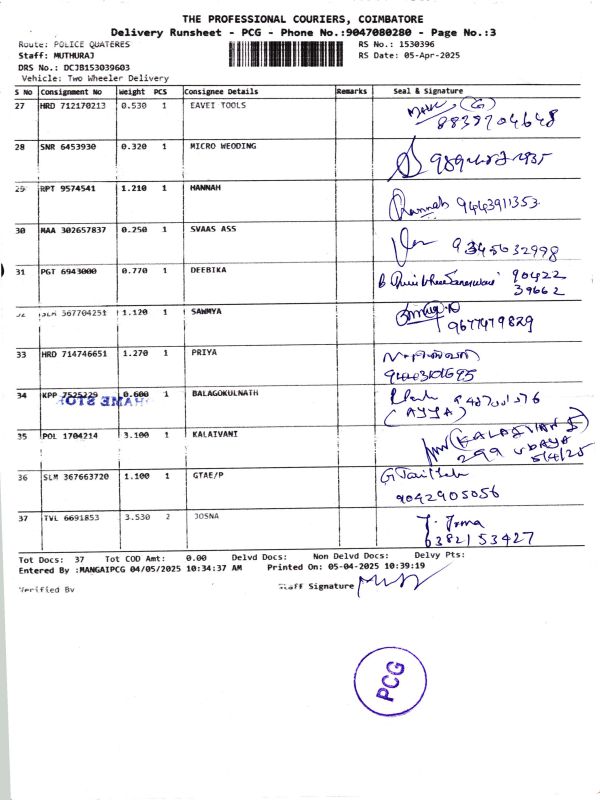 THE PROFESSIONAL COURIERS, COIMBATORE
Delivery Runsheet - PCG - Phone No.:9047080280 - Page No.:3
Route: POLICE QUATERES RS No.: 1530396
Staff: MUTHURAJ RS Date: 05-Apr-2025
DRS No.: DCJB153039603
Vehicle: Two Wheeler Delivery
S No Consignment No Weight PCS Consignee Details Remarks Seal & Signature
27 HRD 712170213 0.530 1 EAVEI TOOLS
8839204648
28 SNR 6453930 0.320 1 MICRO WEODING
29 RPT 9574541 1.210 1 HANNAH Hannah 9443911353
30 MAA 302657837 0.250 1 SVAAS ASS 9345632998
31 PGT 6943000 0.770 1 DEEBIKA 90422
39662
32 SLM 367704251 1.120 1 SAWMYA
9677479829
33 HRD 714746651 1.270 1 PRIYA
34 KPP 7525229 0.600 1 BALAGOKULNATH
(AYYA)
35 POL 1704214 3.100 1 KALAIVANI (KALAIVANI)
299 UDAYA
5/4/25
36 SLM 367663720 1.100 1 GTAE/P
9042905056
37 TVL 6691853 3.530 2 JOSNA J. Josna
6382153427
Tot Docs: 37 Tot COD Amt: 0.00 Delvd Docs: Non Delvd Docs: Delvy Pts:
Entered By :MANGAIPCG 04/05/2025 10:34:37 AM Printed On: 05-04-2025 10:39:19
Verified By Staff Signature
PCG